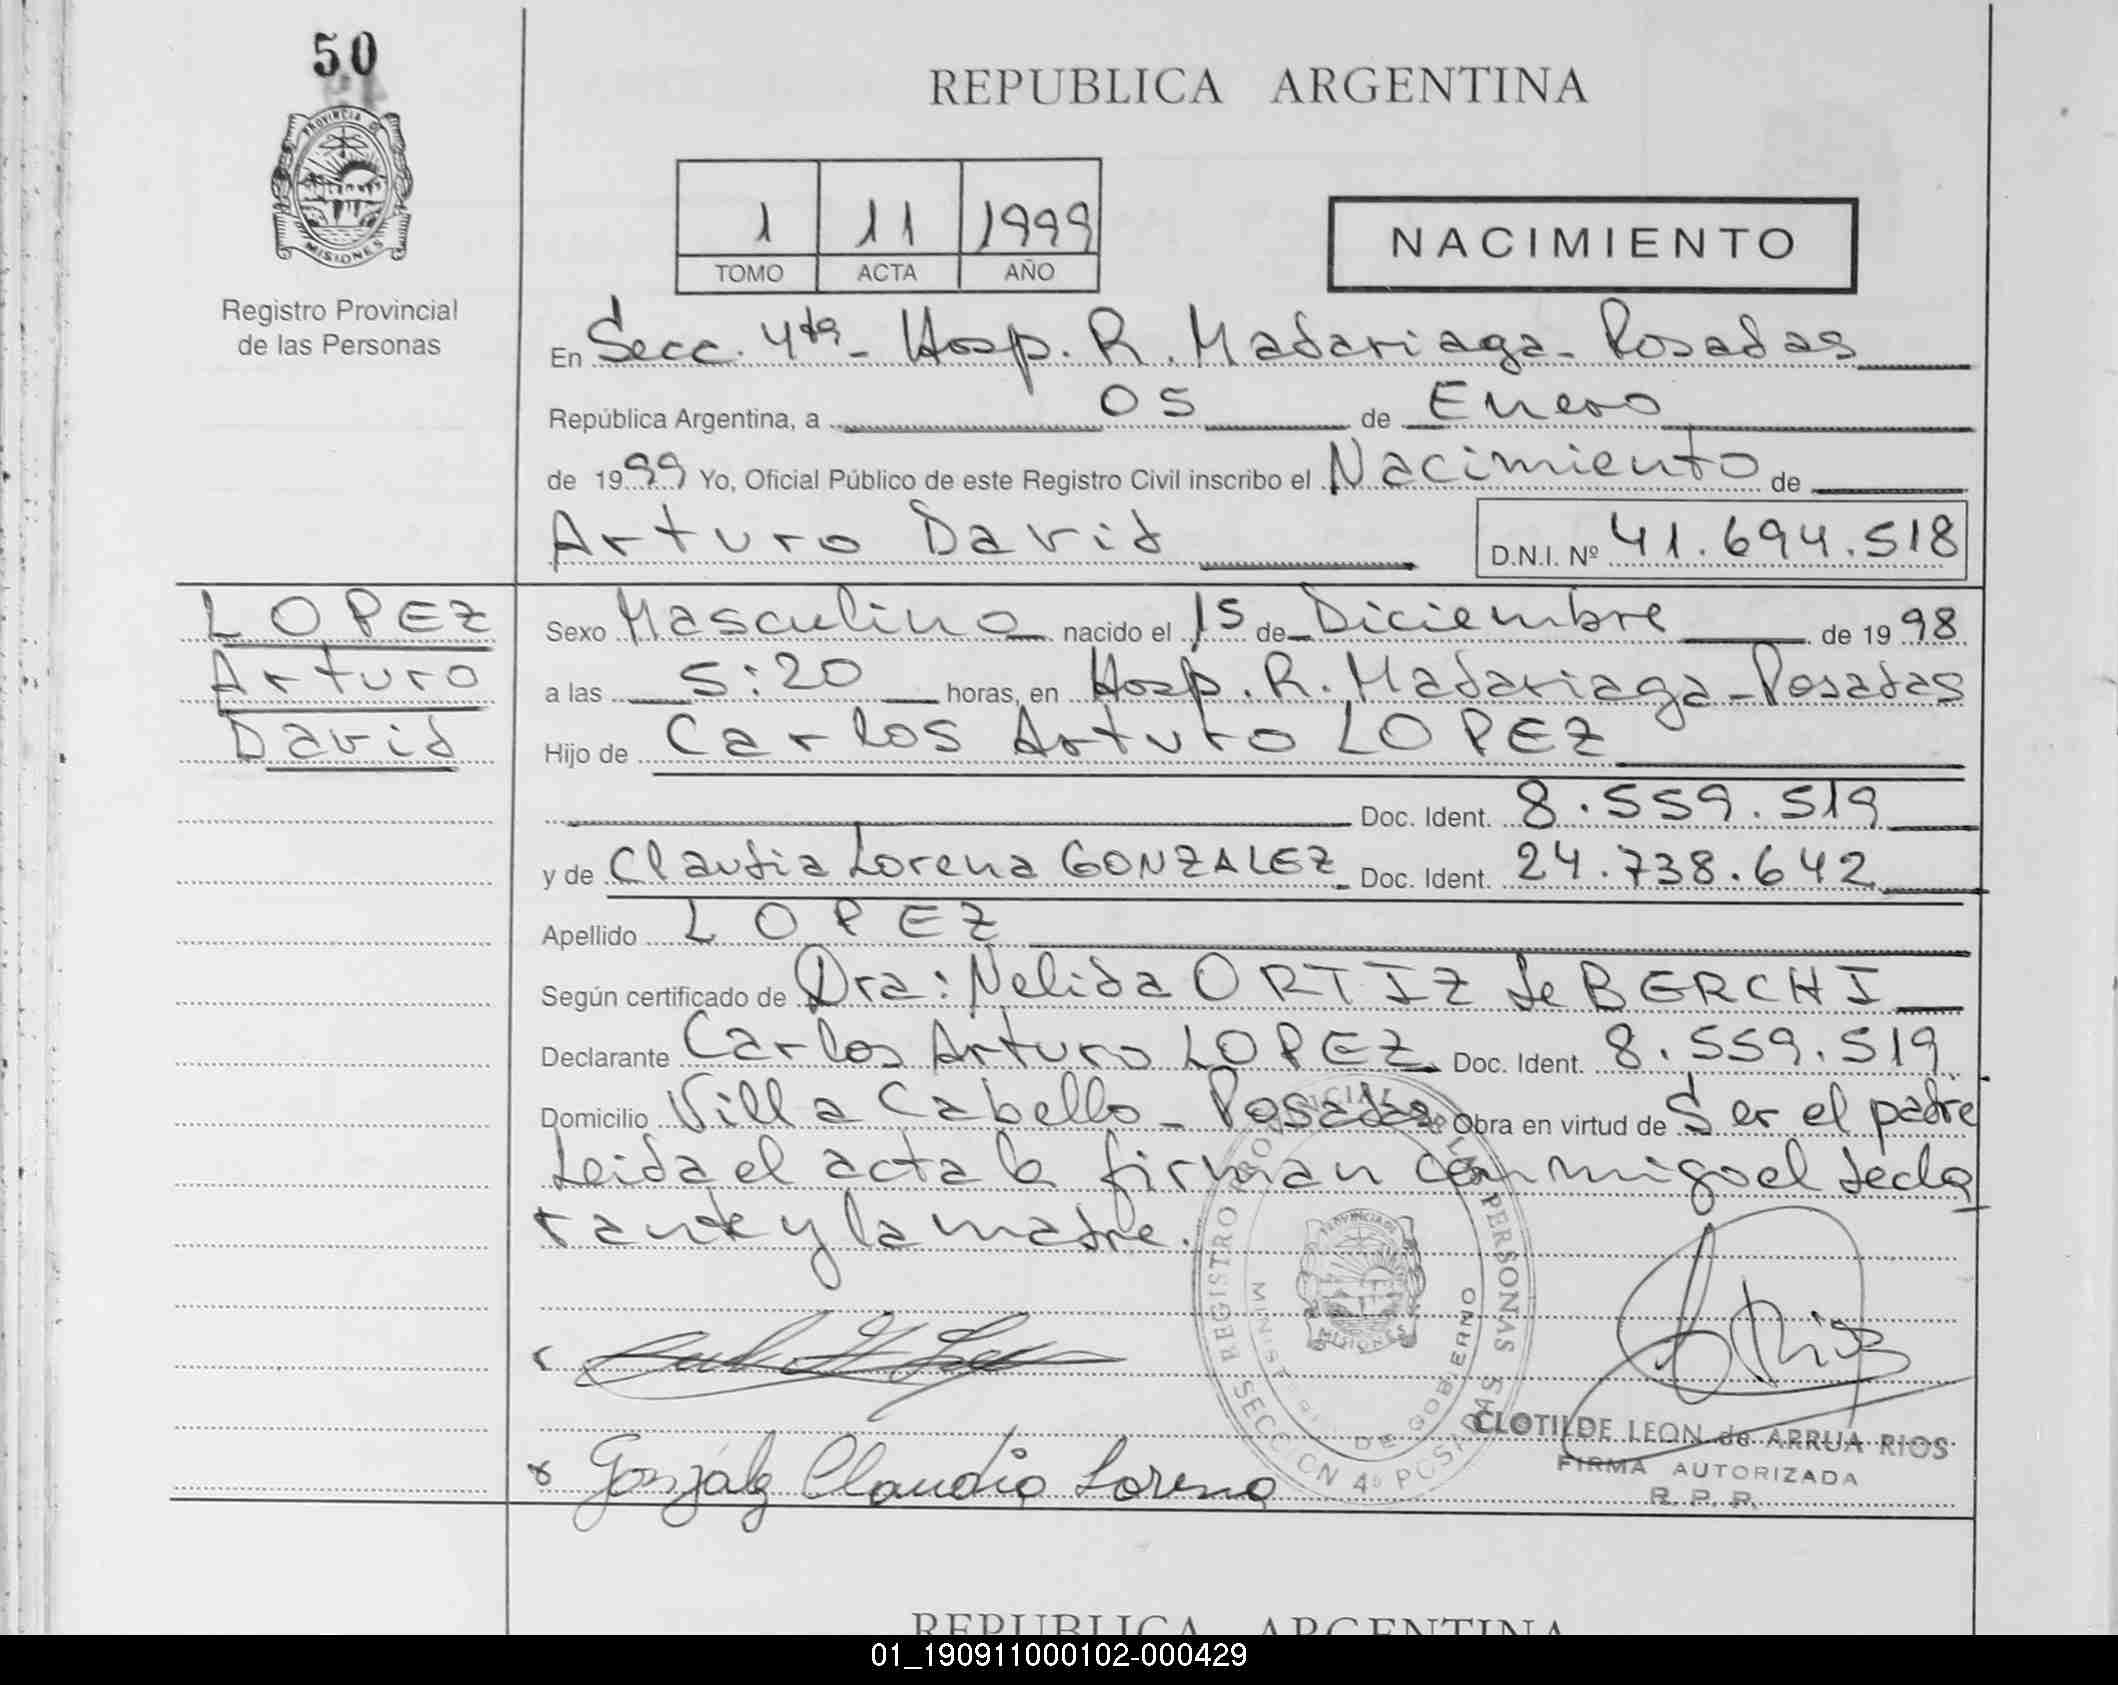 50
PROVINCIA DE
MISIONES
Registro Provincial
de las Personas
REPUBLICA ARGENTINA
1 11 1999
TOMO ACTA AÑO
NACIMIENTO
En Secc. 4ta - Hosp. R. Madariaga - Posadas
República Argentina, a 05 de Enero
de 1999 Yo, Oficial Público de este Registro Civil inscribo el Nacimiento de
Arturo David D.N.I. Nº 41.694.518
LOPEZ
Arturo
David
Sexo Masculino nacido el 15 de Diciembre de 1998
a las 5:20 horas, en Hosp. R. Madariaga - Posadas
Hijo de Carlos Arturo LOPEZ
Doc. Ident. 8.559.519
y de Claudia Lorena GONZALEZ Doc. Ident. 24.738.642
Apellido LOPEZ
Según certificado de Dra: Nelida ORTIZ de BERCHI
Declarante Carlos Arturo LOPEZ Doc. Ident. 8.559.519
Domicilio Villa Cabello - Posadas Obra en virtud de Ser el padre
Leida el acta la firman conmigo el decla
rante y la madre.
REGISTRO PROVINCIAL DE LAS PERSONAS
SECCION 4º POSADAS
MINISTERIO DE GOBIERNO
PROVINCIA DE
MISIONES
A Rios
CLOTILDE LEON de ARRUA RIOS
FIRMA AUTORIZADA
R. P. P.
x González Claudia Lorena
REPUBLICA ARGENTINA
01_190911000102-000429